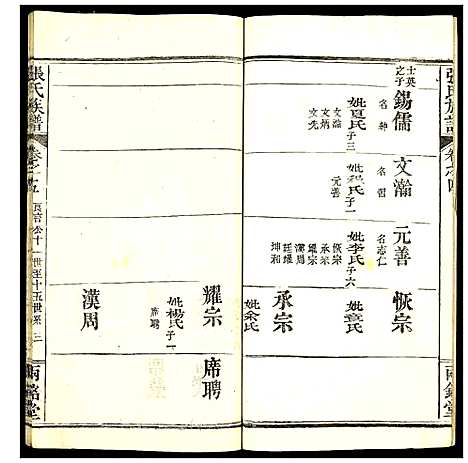 張氏族譜
卷之四
兩銘堂
士英
之子
錫儒
名紳
妣夏氏
子三
文瀚
文炳
文光
文瀚
妣程氏
子一
元善
名志仁
妣李氏
子六
恢宗
承宗
耀宗
漢周
廷耀
坤和
恢宗
妣袁氏
承宗
妣余氏
耀宗
妣楊氏
子一
席聘
席聘
漢周
張氏族譜
卷之五
世至十五世系
兩銘堂